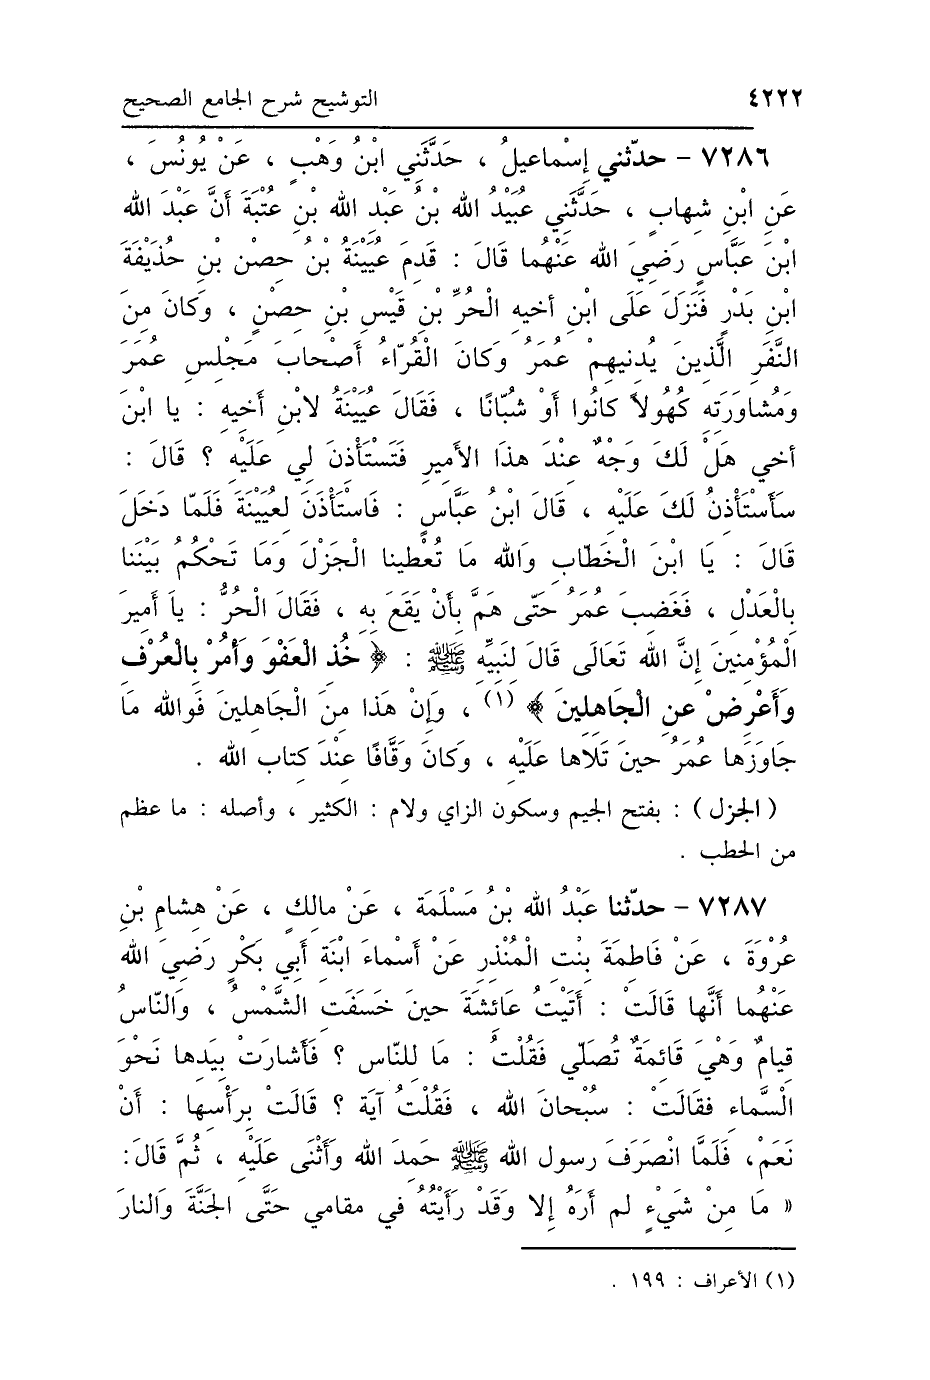 ٤٢٢٢ التوشيح شرح الجامع الصحيح
٧٢٨٦ - حدّثني إسْماعيلُ ، حَدَّثَنِي ابْنُ وَهْبٍ ، عَنْ يُونُسَ ،
عَنِ ابْنِ شِهابٍ ، حَدَّثَنِي عُبَيْدُ الله بْنُ عَبْدِ الله بْنِ عُتْبَةَ أَنَّ عَبْدَ الله
ابْنَ عَبَّاسٍ رَضِيَ الله عَنْهُما قَالَ : قَدِمَ عُيَيْنَةُ بْنُ حِصْنِ بْنِ حُذَيْفَةَ
ابْنِ بَدْرٍ فَنَزَلَ عَلَى ابْنِ أخيهِ الْحُرِّ بْنِ قَيْسِ بْنِ حِصْنٍ ، وَكانَ مِنَ
النَّفَرِ الَّذينَ يُدْنيهِمْ عُمَرُ وَكانَ الْقُرّاءُ أصْحابَ مَجْلِسِ عُمَرَ
وَمُشاوَرَتِهِ كُهُولاً كانُوا أوْ شُبّانًا ، فَقالَ عُيَيْنَةُ لابْنِ أخيهِ : يا ابْنَ
أخي هَلْ لَكَ وَجْهٌ عِنْدَ هذَا الأميرِ فَتَسْتَأْذِنَ لِي عَلَيْهِ ؟ قَالَ :
سَأسْتَأْذِنُ لَكَ عَلَيْهِ ، قَالَ ابْنُ عَبَّاسٍ : فَاسْتَأْذَنَ لِعُيَيْنَةَ فَلَمّا دَخَلَ
قَالَ : يَا ابْنَ الْخَطّابِ وَالله مَا تُعْطينا الْجَزْلَ وَمَا تَحْكُمُ بَيْنَنا
بِالْعَدْلِ ، فَغَضِبَ عُمَرُ حَتّى هَمَّ بِأَنْ يَقَعَ بِهِ ، فَقَالَ الْحُرُّ : ياَ أَمِيرَ
الْمُؤْمِنينَ إنَّ الله تَعَالَى قَالَ لِنَبِيِّهِ ﷺ : ﴿ خُذِ الْعَفْوَ وَأمُرْ بِالْعُرْفِ
وَأَعْرِضْ عنِ الْجَاهِلِينَ ﴾ (١) ، وَإنْ هَذا مِنَ الْجَاهِلينَ فَوالله مَا
جاوَزَها عُمَرُ حينَ تَلاها عَلَيْهِ ، وَكانَ وَقَّافًا عِنْدَ كِتابِ الله .
( الجزل ) : بفتح الجيم وسكون الزاي ولام : الكثير ، وأصله : ما عظم
من الحطب .
٧٢٨٧ - حدّثنا عَبْدُ الله بْنُ مَسْلَمَةَ ، عَنْ مالِكٍ ، عَنْ هِشامِ بْنِ
عُرْوَةَ ، عَنْ فَاطِمَةَ بِنْتِ الْمُنْذِرِ عَنْ أسْماءَ ابْنَةِ أبِي بَكْرٍ رَضِيَ الله
عَنْهُما أنَّها قَالَتْ : أتَيْتُ عَائِشَةَ حينَ خَسَفَتِ الشَّمْسُ ، وَالنّاسُ
قِيامٌ وَهْيَ قَائِمَةٌ تُصَلّي فَقُلْتُ : مَا للنّاسِ ؟ فَأشارَتْ بِيَدِها نَحْوَ
السَّماءِ فقالَتْ : سُبْحانَ الله ، فَقُلْتُ آيَة ؟ قَالَتْ بِرَأْسِها : أنْ
نَعَمْ، فَلَمَّا انْصَرَفَ رسول الله ﷺ حَمِدَ الله وَأَثْنَى عَلَيْهِ ، ثُمَّ قَالَ:
« مَا مِنْ شَيْءٍ لم أرَهُ إلا وَقَدْ رَأَيْتُهُ في مقامي حَتَّى الجَنَّةَ وَالنارَ
(١) الأعراف : ١٩٩ .